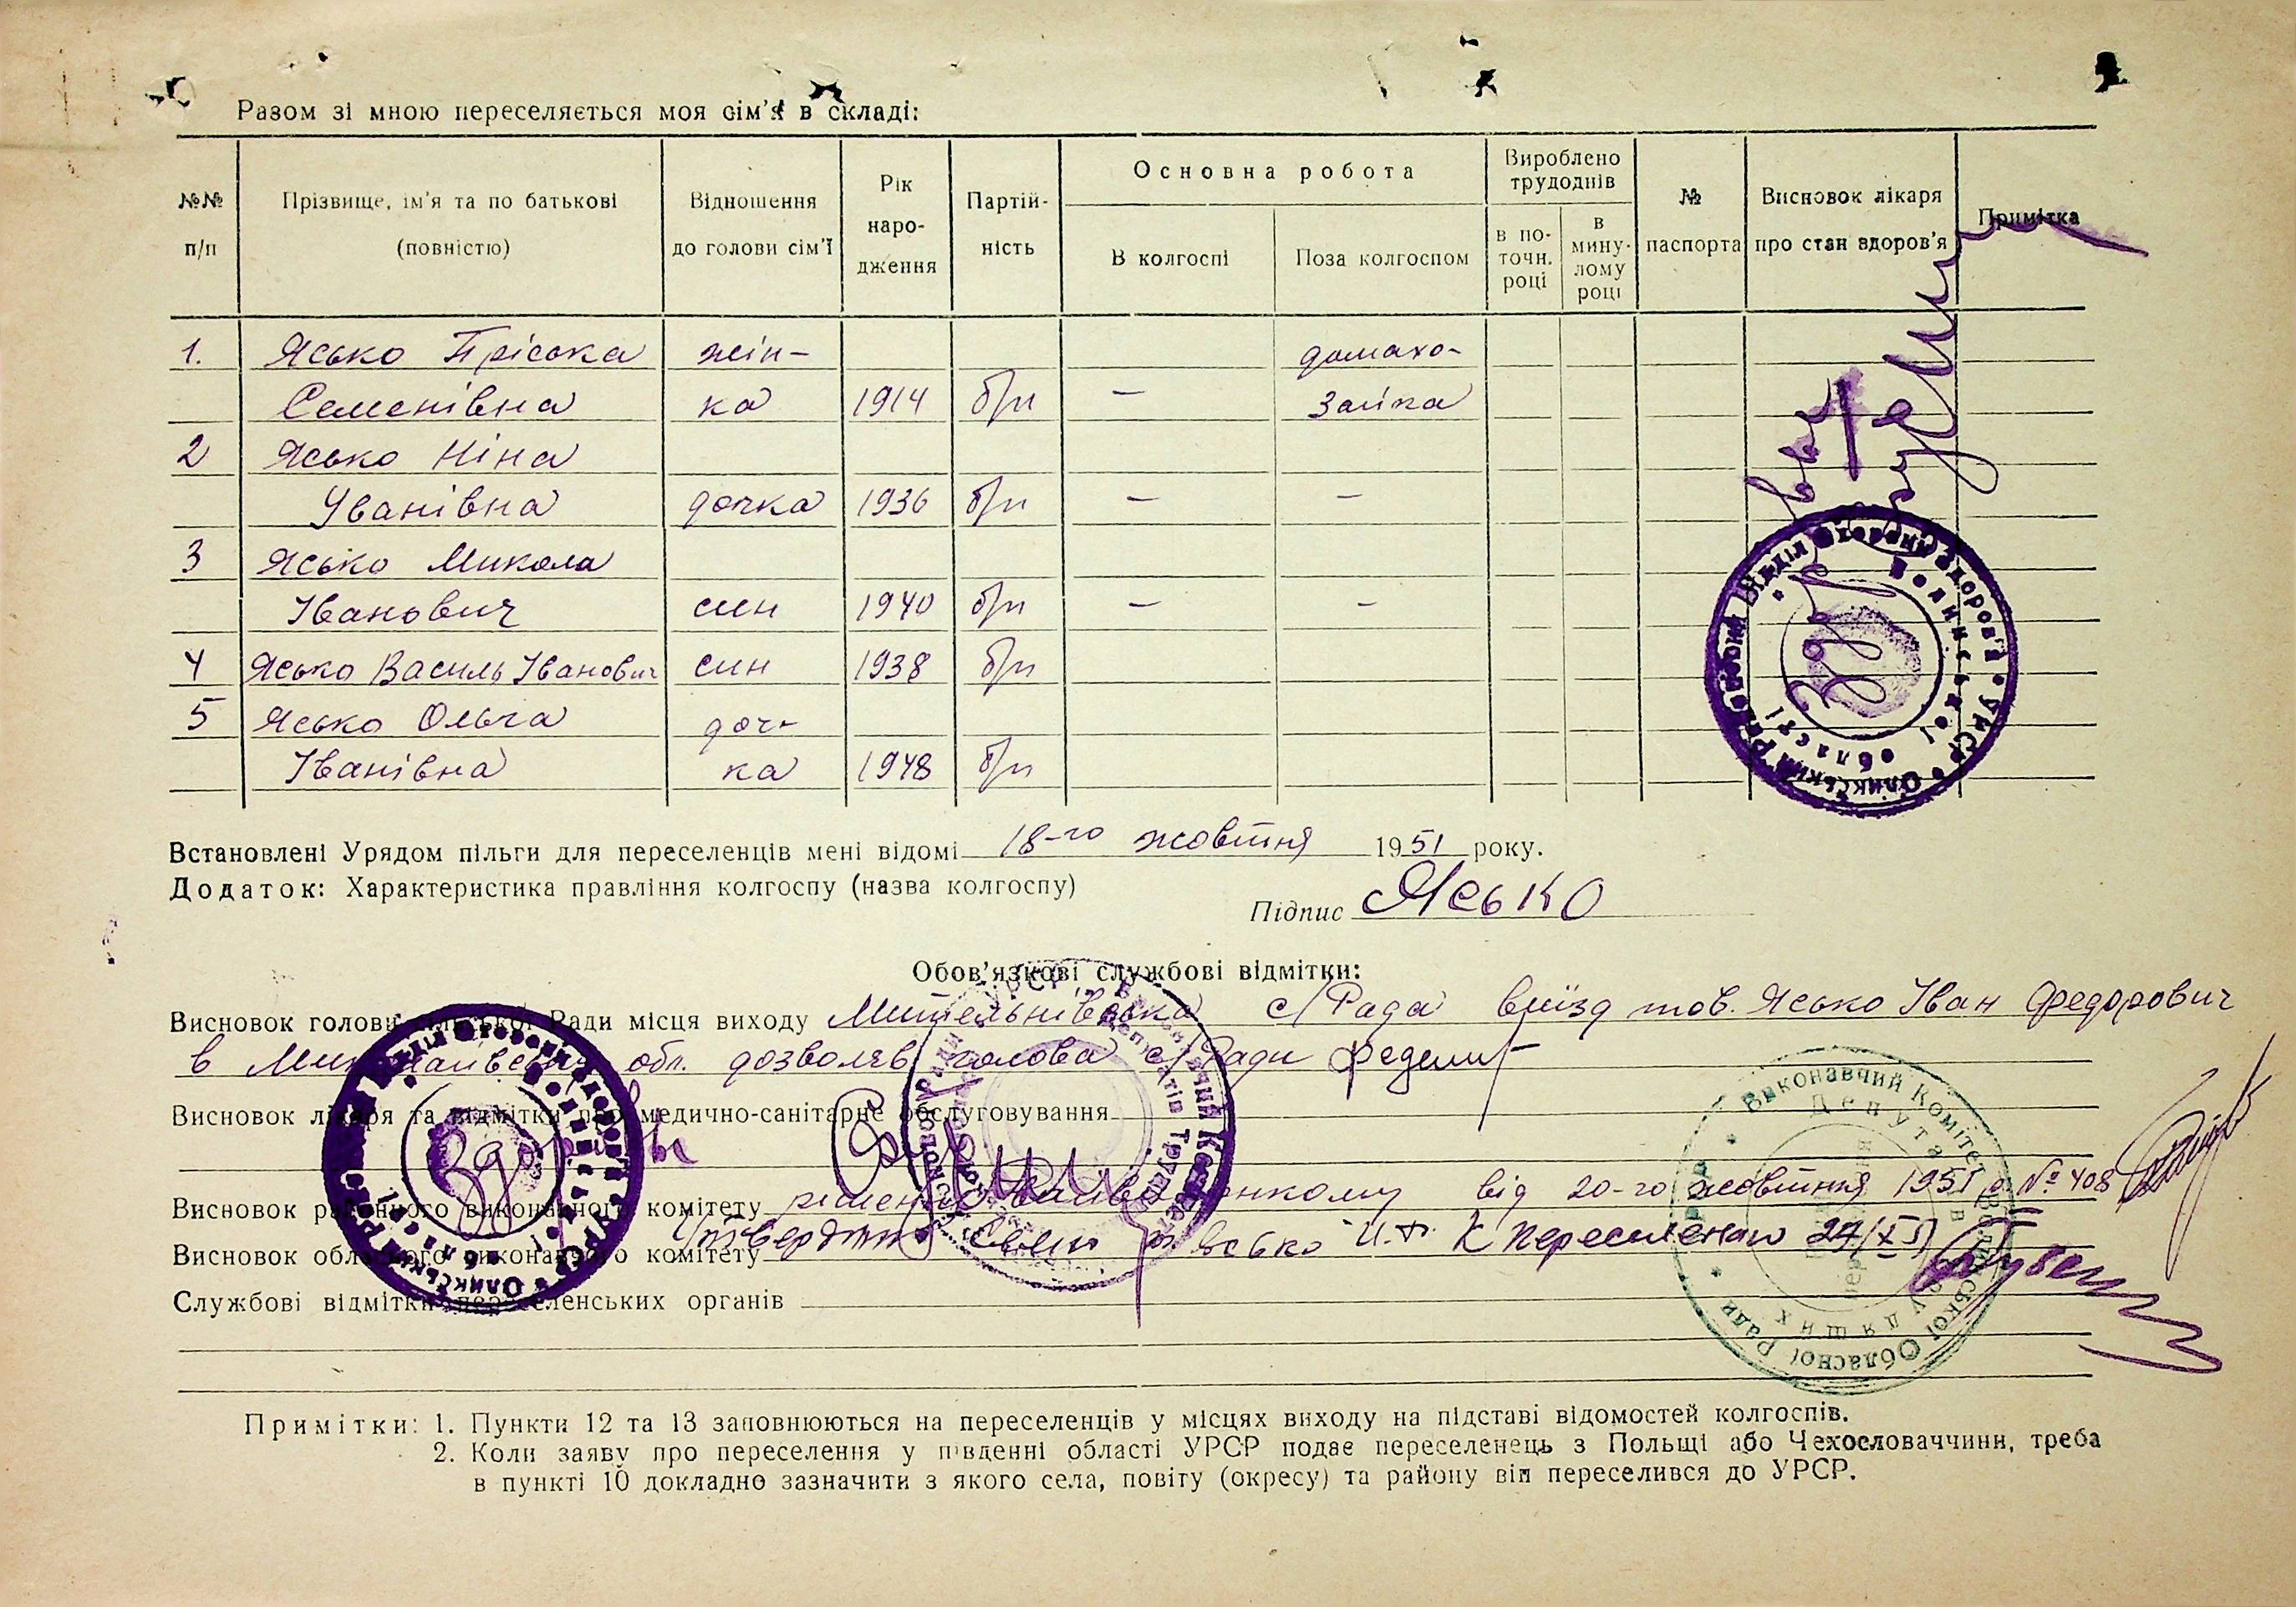 Разом зі мною переселяється моя сім'я в складі:
№№ п/п
Прізвище, ім'я та по батькові (повністю)
Відношення до голови сім'ї
Рік народження
Партійність
Основна робота
В колгоспі
Поза колгоспом
Вироблено трудоднів
в поточн. році
в минулому році
№ паспорта
Висновок лікаря про стан здоров'я
Примітка
1. Ясько Пріська жін- домахо-
Семенівна ка 1914 б/п — зяйка
2 Ясько Ніна
Іванівна дочка 1936 б/п — —
3 Ясько Микола
Іванович син 1940 б/п — —
4 Ясько Василь Іванович син 1938 б/п
5 Ясько Ольга доч-
Іванівна ка 1948 б/п
Олинський Районний Відділ Охорони Здоров'я УРСР
Волинської області
Встановлені Урядом пільги для переселенців мені відомі 18-го жовтня 1951 року.
Додаток: Характеристика правління колгоспу (назва колгоспу)
Підпис Ясько
Обов'язкові службові відмітки:
Висновок голови сільської Ради місця виходу с/Рада виїзд тов. Ясько Іван Федорович
в Миколаївську обл. дозволяє голова с/Ради
Висновок лікаря та відмітки про медично-санітарне обслуговування
здорові
Висновок районного виконавчого комітету рішення від 20-го жовтня 1951 р №408
Висновок обласного виконавчого комітету Ясько И.Ф. к переселению 24/XI
Службові відмітки переселенських органів
Виконавчий Комітет Волинської Обласної Ради
Депутатів Трудящих
Примітки: 1. Пункти 12 та 13 заповнюються на переселенців у місцях виходу на підставі відомостей колгоспів.
2. Коли заяву про переселення у південні області УРСР подає переселенець з Польщі або Чехословаччини, треба
в пункті 10 докладно зазначити з якого села, повіту (окресу) та району він переселився до УРСР.